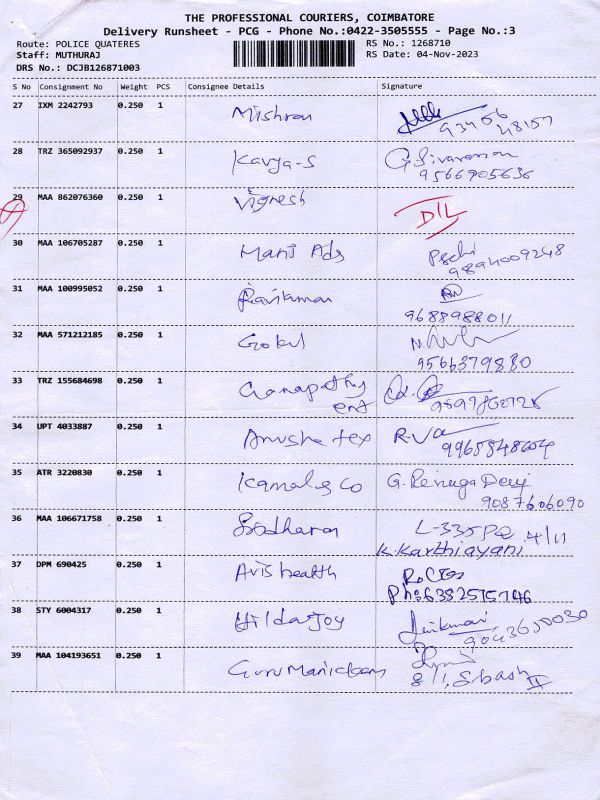 THE PROFESSIONAL COURIERS, COIMBATORE
Delivery Runsheet - PCG - Phone No.:0422-3505555 - Page No.:3
Route: POLICE QUATERES
Staff: MUTHURAJ
DRS No.: DCJB126871003
RS No.: 1268710
RS Date: 04-Nov-2023
S No Consignment No Weight PCS Consignee Details Signature
27 IXM 2242793 0.250 1 Mishran
28 TRZ 365092937 0.250 1 Kavya-S G. Sivaraman
9566905636
29 MAA 862076360 0.250 1 Vignesh D/L
30 MAA 106705287 0.250 1 Mani Ads
9894009248
31 MAA 100995052 0.250 1 Ravikumar
9688988011
32 MAA 571212185 0.250 1 Gokul
9566379880
33 TRZ 155684698 0.250 1 Ganapathy
ent
34 UPT 4033887 0.250 1 Anusha tex
35 ATR 3220830 0.250 1 Kamal & Co G. Renuga Devi
9087606090
36 MAA 106671758 0.250 1 Sridharan 4/11
K. Karthiayani
37 DPM 690425 0.250 1 Avis health
Ph:6382515746
38 STY 6004317 0.250 1 Hilda Joy
9043650030
39 MAA 104193651 0.250 1 Guru Manickam